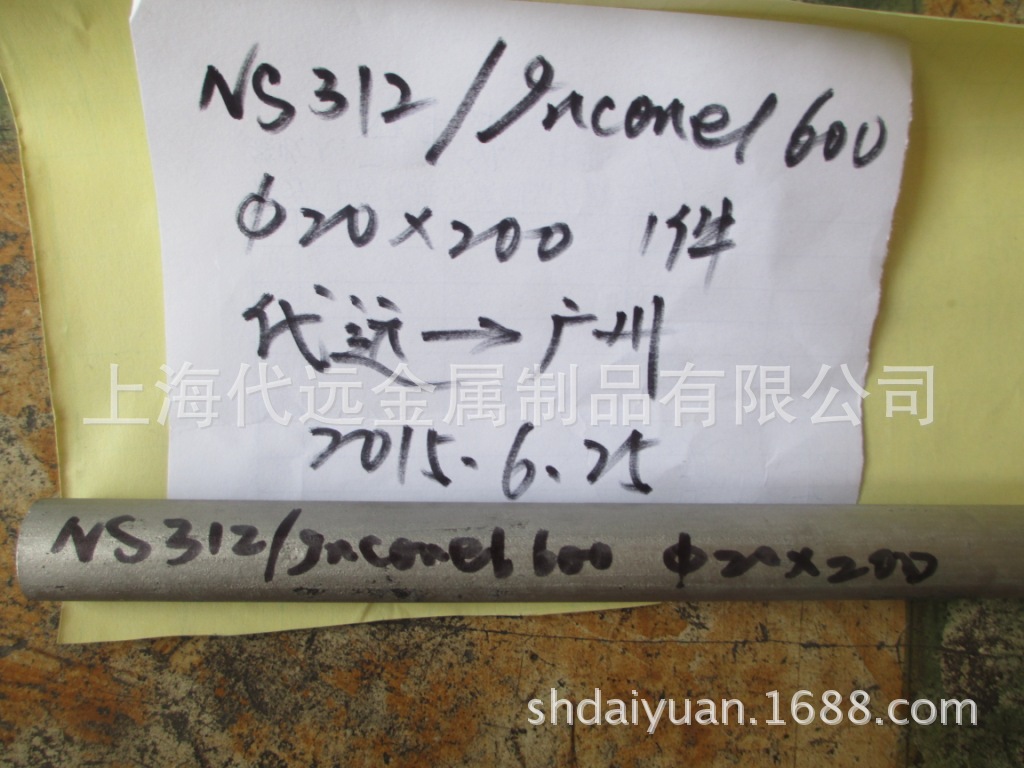 NS312/Inconel 600
Φ20×200 1件
代远→广州
上海代远金属制品有限公司
2015.6.25
NS312/Inconel 600 Φ20×200
shdaiyuan.1688.com